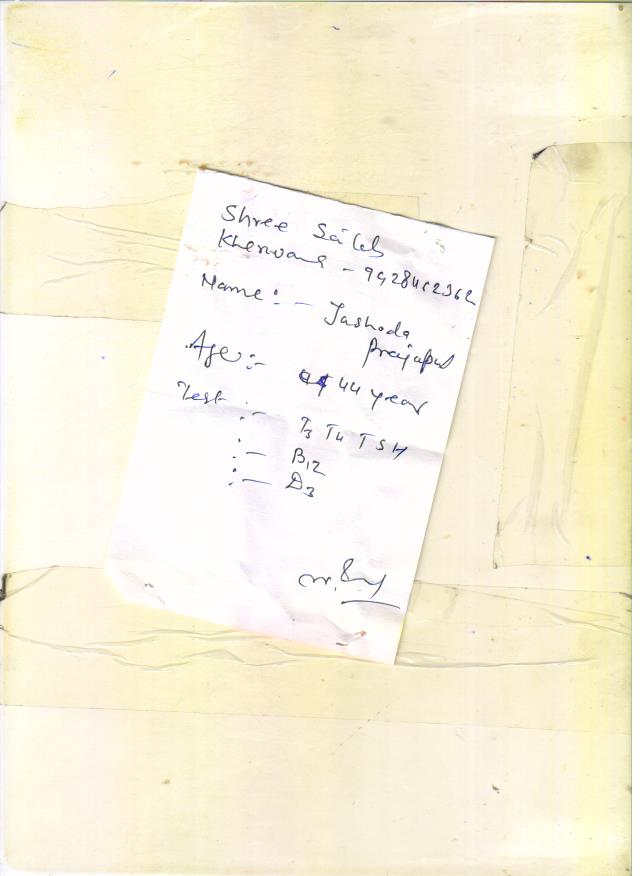 Shree Sai Lab
Kherwara -
Name :- Jashoda
Prajapat
Age :- 44 year
Test :- T3 T4 TSH
:- B12
:- D3